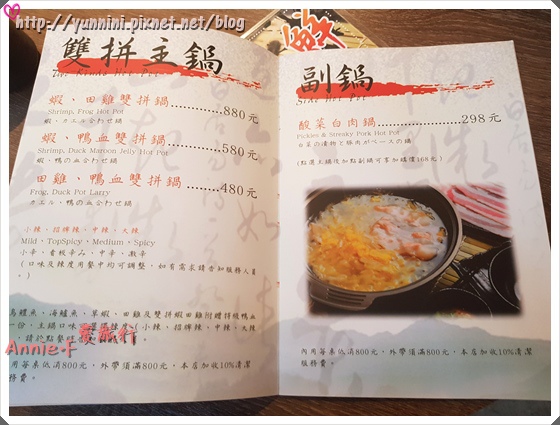 http://yunnini.pixnet.net/blog
鮮
雙拼主鍋
Two Kinds Hot Pot
蝦、田雞雙拼鍋..............880元
Shrimp, Frog Hot Pot
蝦、カエル合わせ鍋
蝦、鴨血雙拼鍋..............580元
Shrimp, Duck Maroon Jelly Hot Pot
蝦、鴨の血合わせ鍋
田雞、鴨血雙拼鍋..............480元
Frog, Duck Pot Larry
カエル、鴨の血合わせ鍋
小辣、招牌辣、中辣、大辣
Mild、TopSpicy、Medium、Spicy
小辛、看板辛み、中辛、激辛
(口味及辣度用餐中均可調整，如有需求請告知服務人員
。)
烏鱧魚、海鱸魚、草蝦、田雞及雙拼蝦田雞附贈拼檳鴨血
一份，主鍋口味
小辣、招牌辣、中辣、大辣
Annie+愛旅行
內用每桌低消800元，外帶須滿800元，本店加收10%清潔
服務費。
副鍋
Side Hot Pot
酸菜白肉鍋..............298元
Pickles & Streaky Pork Hot Pot
白菜の漬物と豚肉がベースの鍋
(點選主鍋後加點副鍋可享加購價168元)
內用每桌低消800元，外帶須滿800元，本店加收10%清潔
服務費。